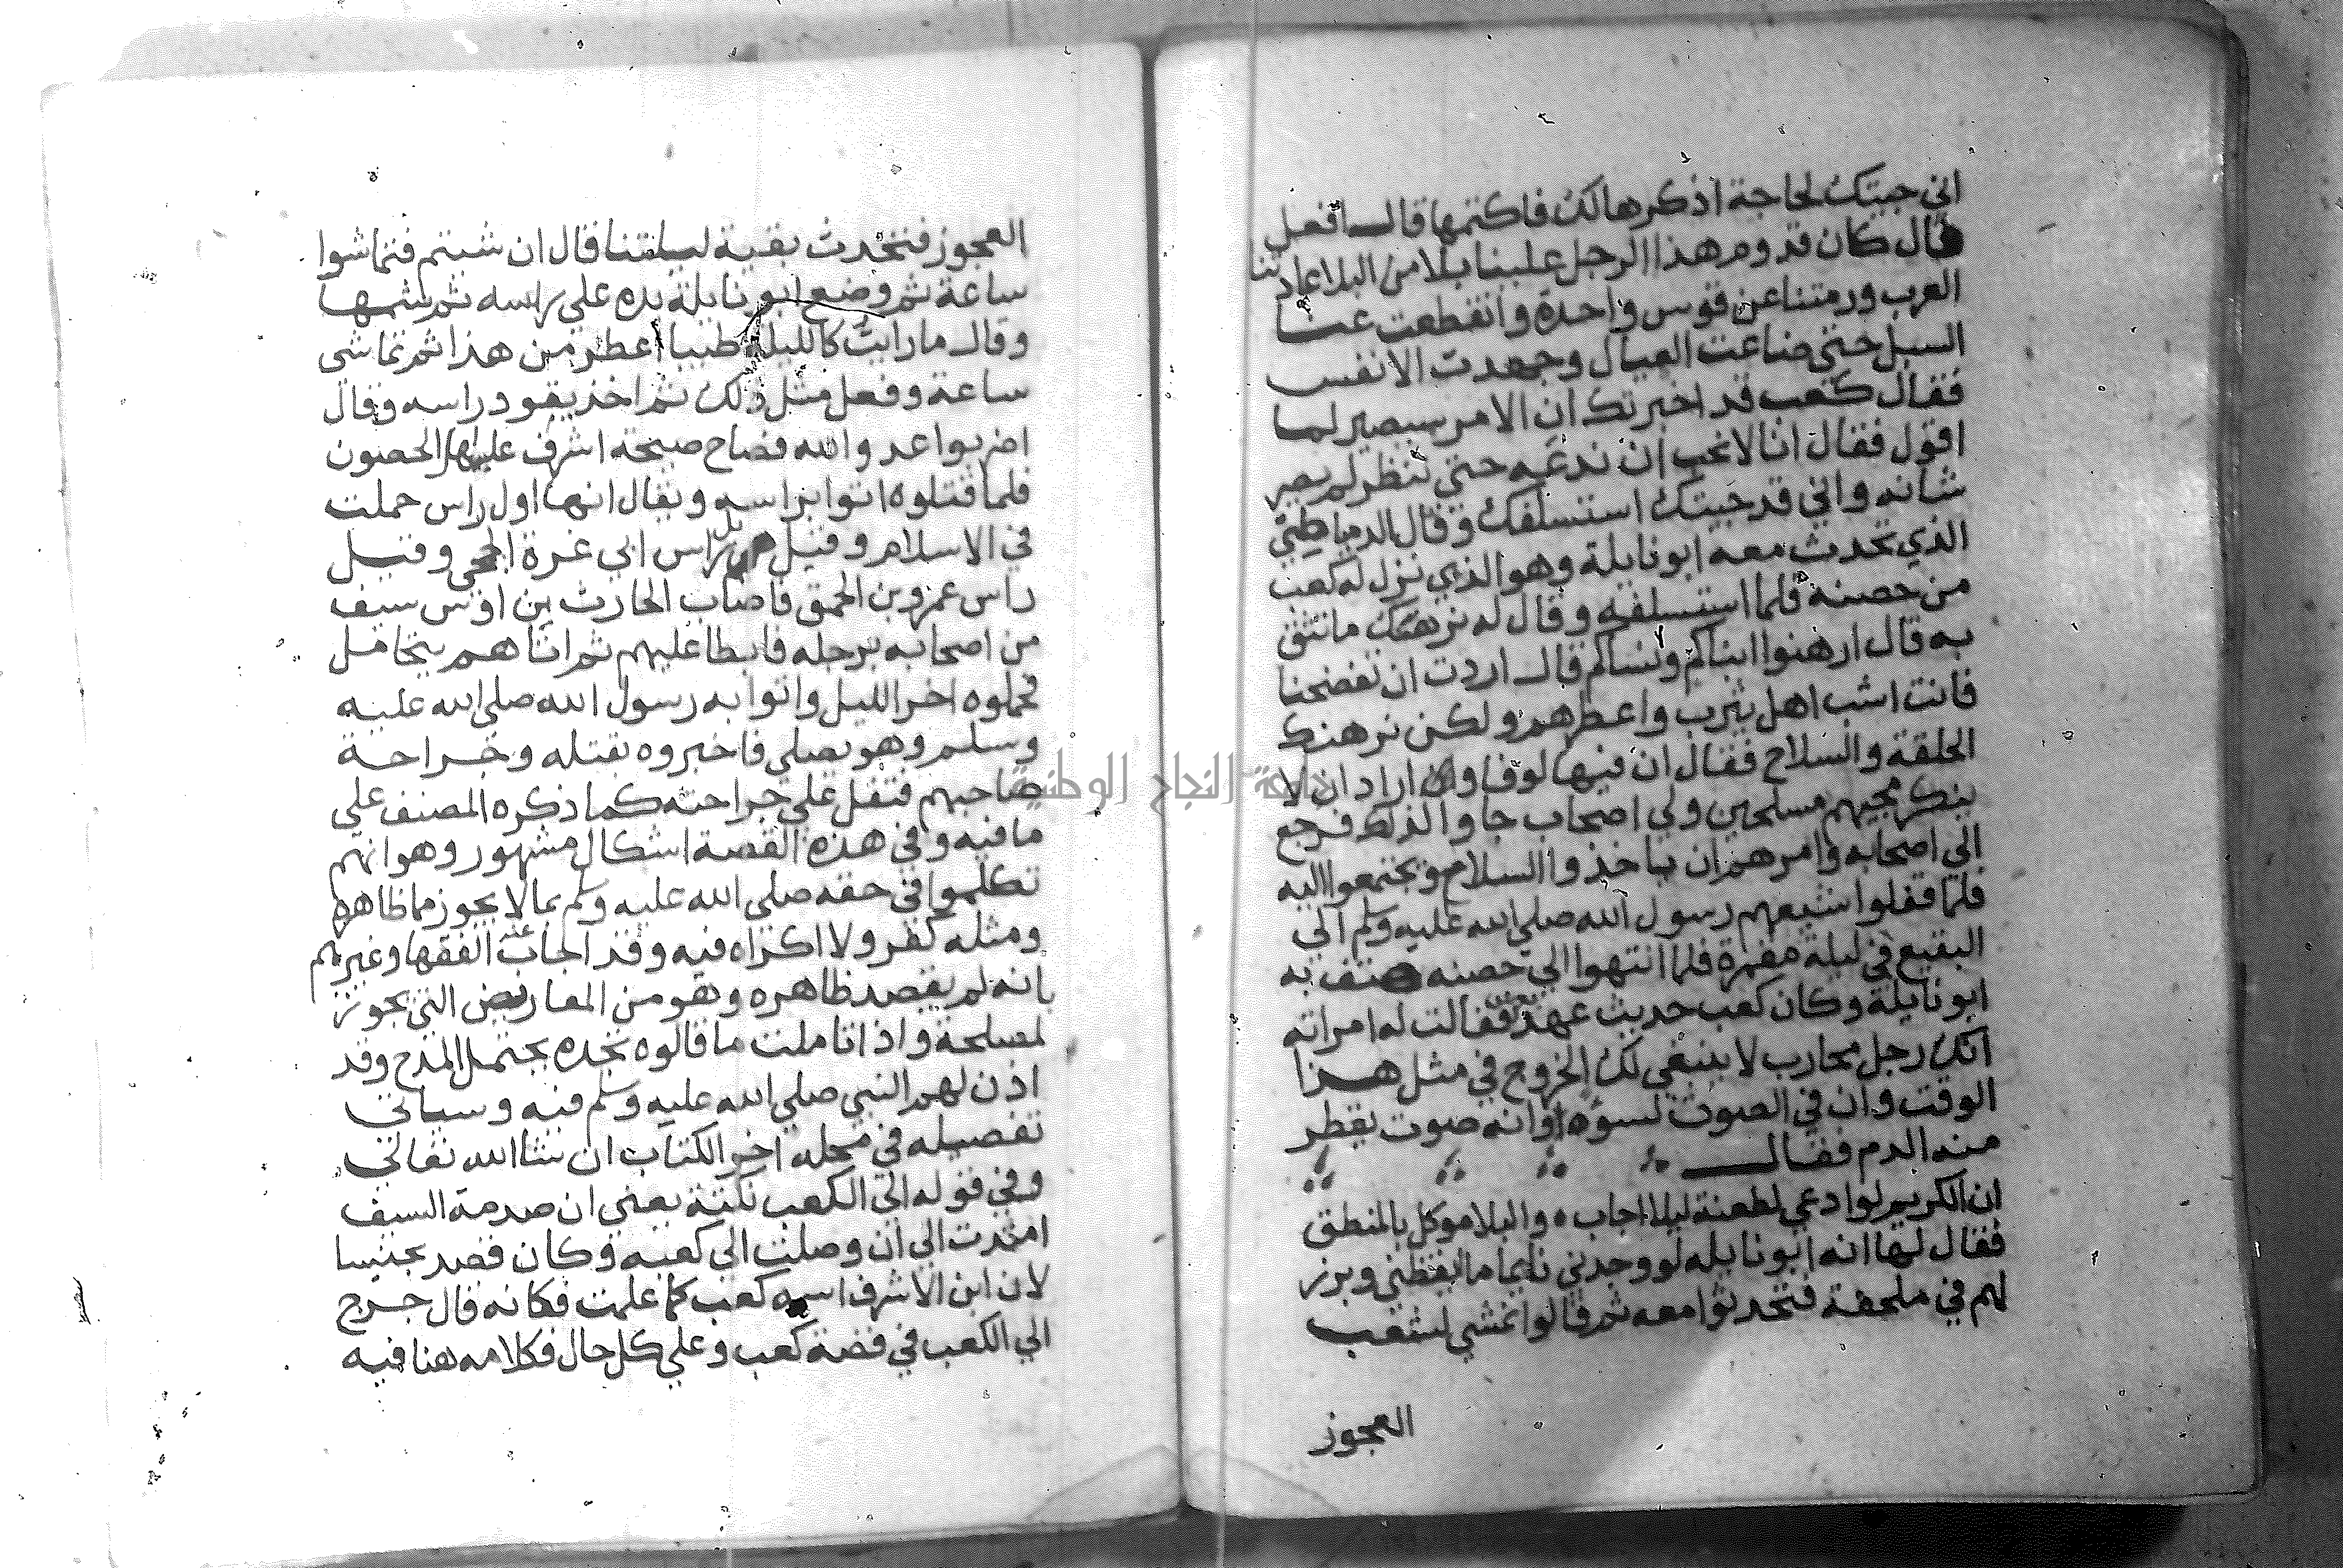 اني جيتك لحاجة اذكرها لك فاكتمها قال افعل
قال كان قدوم هذا الرجل علينا بلا من البلا عادتنا
العرب ورمتنا عن قوس واحدة وانقطعت عنا
السبل حتى ضاعت العيال وجهدت الانفس
فقال كعب قد اخبرتك ان الامر سيصير لما
اقول فقال انا لا نحب ان ندعه حتى ننظر لم يصير
شانه واني قد جيتك استسلفك وقال الدمياطي
الذي تحدث معه ابو نايلة وهو الذي نزل له كعب
من حصنه فلما استسلفه وقال له نرهنك ما تثق
به قال ارهنوا ابناكم ونساكم قال اردت ان تفضحنا
فانت اشب اهل يثرب واعطرهم ولكن نرهنك
الحلقة والسلاح فقال ان فيها لوفا واراد ان لا
ينكر مجيهم مسلحين ولي اصحاب جاوا لذلك فرجع
الي اصحابه وامرهم ان ياخذوا السلاح ويجتمعوا اليه
فلما قفلوا شيعهم رسول الله صلي الله عليه وسلم الي
البقيع في ليلة مقمرة فلما انتهوا الي حصنه هتف به
ابو نايلة وكان كعب حديث عهد بعرس فقالت له امراته
انك رجل محارب لا ينبغي لك الخروج في مثل هذا
الوقت وان في الصوت لسوه او انه صوت يقطر
منه الدم فقال
ان الكريم لو ادعي لطعنة ليلا اجاب ه والبلا موكل بالمنطق
فقال لها انه ابو نايله لو وجدني نايما ما ايقظني وبرز
لهم في ملحفة فتحدثوا معه ثم قالوا نمشي لشعب
العجوز
العجوز فنتحدث بقية ليلتنا قال ان شيتم فتماشوا
ساعة ثم وضع ابو نايلة يده علي راسه ثم شمها
وقال ما رايت كالليلة طيبا اعطر من هذا ثم تماشي
ساعة وفعل مثل ذلك ثم اخذ بقود راسه وقال
اضربوا عدو الله فصاح صيحة اشرف عليها الحصون
فلما قتلوه اتوا براسه ويقال انها اول راس حملت
في الاسلام وقيل بل راس ابي عزة الجمحي وقيل
راس عمرو بن الحمق فاصاب الحارث بن اوس سيف
من اصحابه برجله فابطا عليهم ثم اتاهم يتحامل
فحملوه اخر الليل واتوا به رسول الله صلي الله عليه
وسلم وهو يصلي فاخبروه بقتله وجراحة
صاحبهم فتفل علي جراحته كما ذكره المصنف علي
ما فيه وفي هذه القصة اشكال مشهور وهو انهم
تكلموا في حقه صلي الله عليه وسلم بما لا يجوز مما ظاهره
ومثله كفر ولا اكراه فيه وقد اجاب عنه الفقها وغيرهم
بانه لم يقصد ظاهره وهو من المعاريض التي تجوز
لمصلحة واذا تاملت ما قالوه تجده يحتمل المدح وقد
اذن لهم النبي صلي الله عليه وسلم فيه وسياتي
تفصيله في محله اخر الكتاب ان شا الله تعالي
وفي قوله الي الكعب نكتة يعني ان صدمة السيف
امتدت الي ان وصلت الي كعبه وكان قصد تجنيسا
لان ابن الاشرف اسمه كعب كما علمت فكانه قال جرح
الي الكعب في قصة كعب وعلي كل حال فكلامه هنا فيه
جامعة النجاح الوطنية